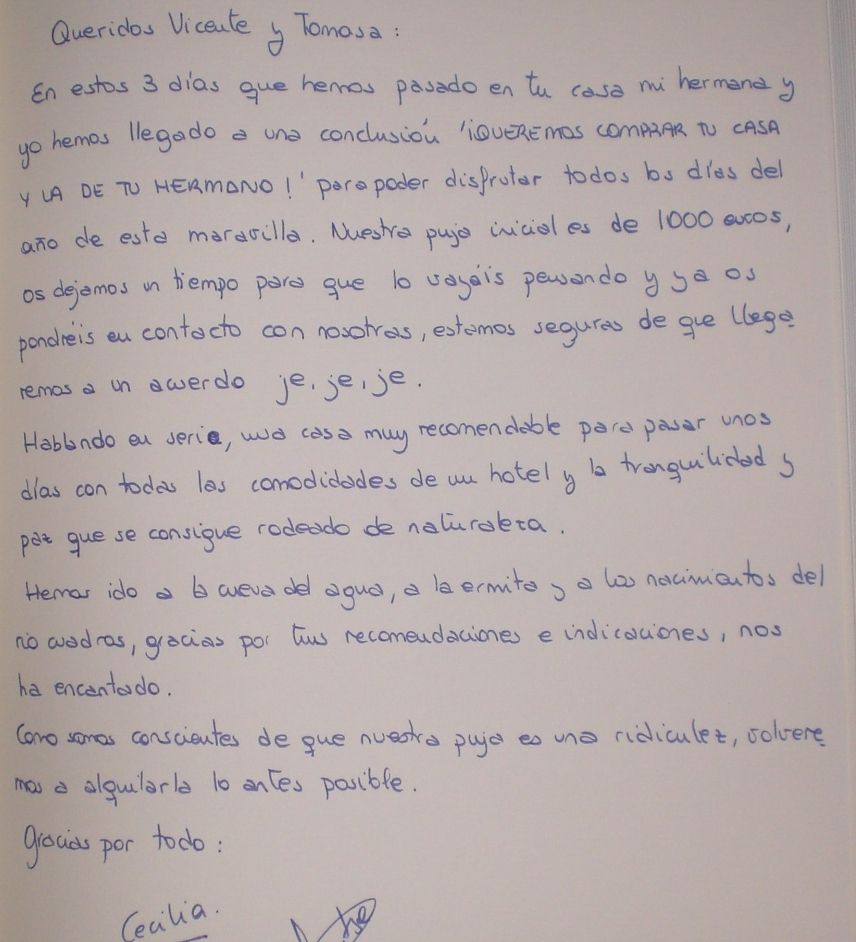 Queridos Vicente y Tomasa :
En estos 3 días que hemos pasado en tu casa mi hermana y
yo hemos llegado a una conclusión '¡QUEREMOS COMPRAR TU CASA
Y LA DE TU HERMANO !' para poder disfrutar todos los días del
año de esta maravilla. Nuestra puja inicial es de 1000 euros,
os dejamos un tiempo para que lo vayáis pensando y ya os
pondréis en contacto con nosotras, estamos seguras de que llega
remos a un acuerdo je, je, je.
Hablando en serie, una casa muy recomendable para pasar unos
días con todas las comodidades de un hotel y la tranquilidad y
paz que se consigue rodeado de naturaleza.
Hemos ido a la cueva del agua, a la ermita y a los nacimientos del
río cuadros, gracias por tus recomendaciones e indicaciones, nos
ha encantado.
Como somos conscientes de que nuestra puja es una ridiculez, volvere
mos a alquilarla lo antes posible.
Gracias por todo :
Cecilia.